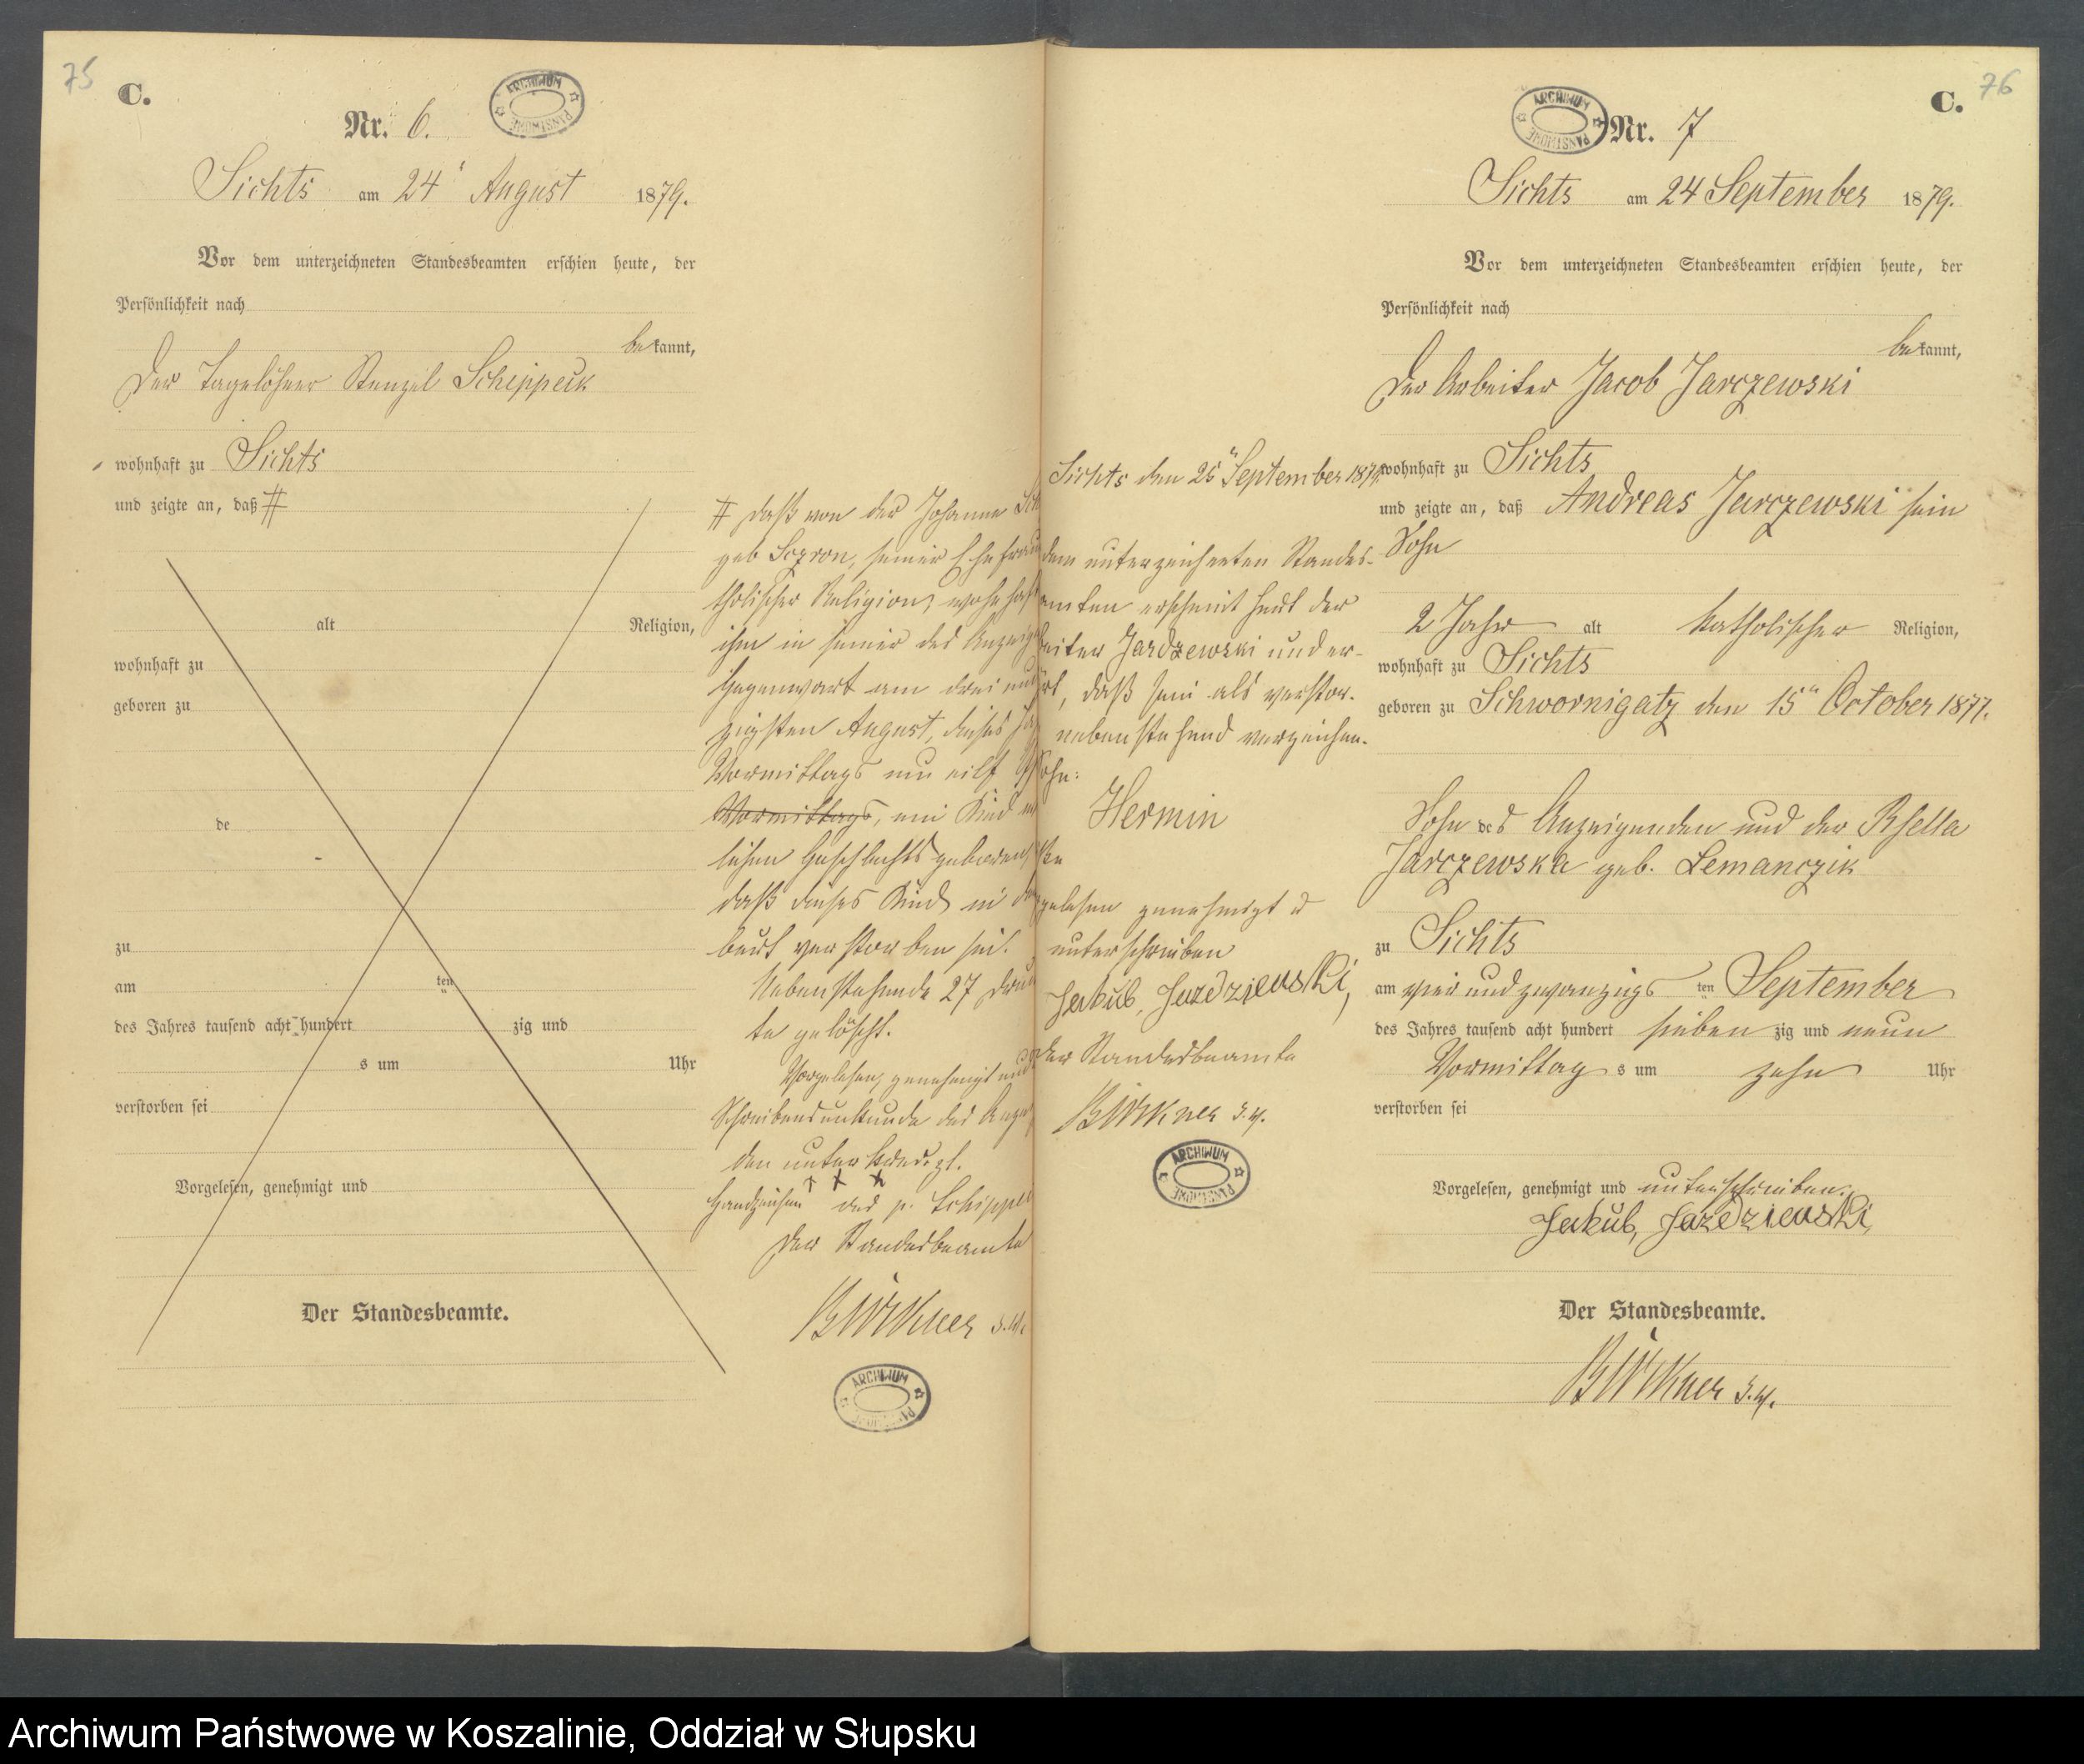 75
C.
ARCHIWUM PAŃSTWOWE
Nr. 6.
Sichts am 24' August 1879.
Vor dem unterzeichneten Standesbeamten erschien heute, der
Persönlichkeit nach
bekannt,
Der Tagelöhner Stenzil Schippeck
wohnhaft zu Sichts
und zeigte an, daß #
alt Religion,
wohnhaft zu
geboren zu
de
zu
am ten
des Jahres tausend acht hundert zig und
s um Uhr
verstorben sei
Vorgelesen, genehmigt und
Der Standesbeamte.
# daß von der Johanna Sch
geb Sczron, seiner Ehefrau
tholischer Religion, wohnhaft
ihm in seiner des Anzeige
Gegenwart am drei und
zigsten August, dieses Ja
Vormittags um eilf Uh
Vormittags, ein Kind
lichen Geschlechts geboren,
daß dieses Kind in der
burt verstorben sei.
Nebenstehende 27 Druck
te gelöscht.
Vorgelesen, genehmigt und
Schreibensunkunde des Anze
den unterkreuzt.
Handzeichen + + + des p. Schippe
Der Standesbeamte
Birkner
ARCHIWUM PAŃSTWOWE
76
C.
ARCHIWUM PAŃSTWOWE
Nr. 7
Sichts am 24 September 1879.
Vor dem unterzeichneten Standesbeamten erschien heute, der
Persönlichkeit nach
bekannt,
Der Arbeiter Jacob Jarczewski
wohnhaft zu Sichts
und zeigte an, daß Andreas Jarczewski sein
Sohn
2 Jahr alt katholischer Religion,
wohnhaft zu Sichts
geboren zu Schwornigatz den 15" October 1877.
Sohn des Anzeigenden und der
Jarczewska geb. Lemanczik
zu Sichts
am vier und zwanzigs ten September
des Jahres tausend acht hundert siebenzig und neun
Vormittag s um zehn Uhr
verstorben sei
Vorgelesen, genehmigt und unterschrieben.
Jakub, Jazdziewski
Der Standesbeamte.
Birkner
Sichts den 25" September 1879.
dem unterzeichneten Standes-
amten erscheint heut der
beiter Jardzewski und er-
rt, daß sein als verstor-
nebenstehend verzeichne-
Sohn:
Hermin
ße
gelesen genehmigt u
unterschrieben
Jakub, Jazdziewski,
Der Standesbeamte
Birkner
ARCHIWUM PAŃSTWOWE
Archiwum Państwowe w Koszalinie, Oddział w Słupsku